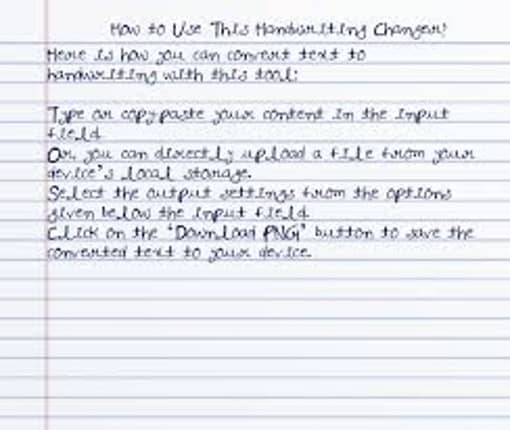 How to Use This Handwriting Changer?
Here is how you can convert text to
handwriting with this tool:
Type or copy-paste your content in the input
field.
Or, you can directly upload a file from your
device's local storage.
Select the output settings from the options
given below the input field.
Click on the "Download PNG" button to save the
converted text to your device.